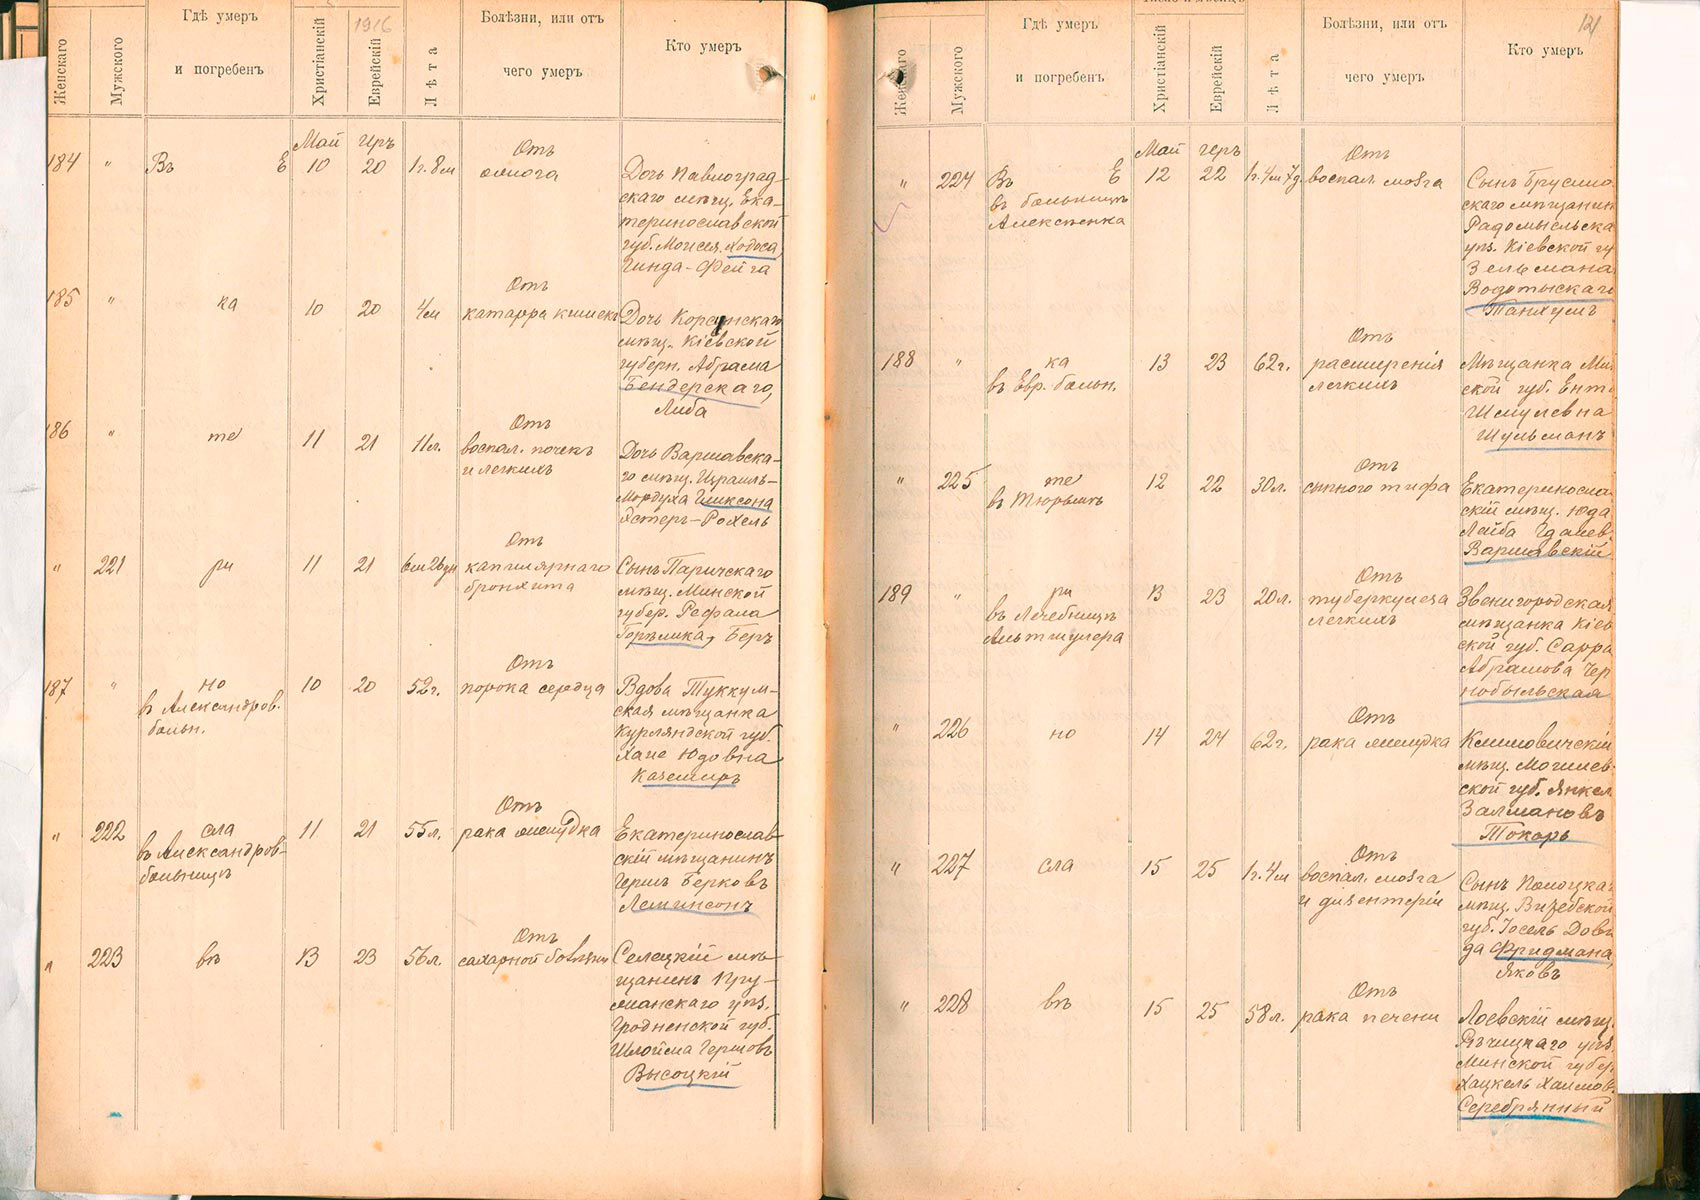 1916
Женскаго
Мужского
Гдѣ умеръ
и погребенъ
Христіанскій
Еврейскій
Лѣта
Болѣзни, или отъ
чего умеръ
Кто умеръ
Май Іеръ
184 " Въ Е 10 20 1г. 8м
Отъ
ожога
Дочь Павлоград-
скаго мѣщ. Ека-
теринославской
губ. Моисея Ходоса,
Гинда-Фейга
185 " ка 10 20 4м
Отъ
катарра кишекъ
Дочь Корсунскаго
мѣщ. Кіевской
губерн. Абрама
Бендерскаго,
Либа
186 " те 11 21 11л.
Отъ
воспал. почекъ
и легкихъ
Дочь Варшавска-
го мѣщ. Израиль-
Мордуха Гликсона
Эстеръ-Рохель
" 221 ри 11 21 6м 26дн
Отъ
капилярнаго
бронхита
Сынъ Паричскаго
мѣщ. Минской
губер. Рефаила
Горѣлика, Беръ
187 " но 10 20 52г.
въ Александров.
больн.
Отъ
порока сердца
Вдова Туккум-
ская мѣщанка
Курляндской губ.
Хане Юдовна
Казениръ
" 222 сла 11 21 55л.
въ Александров-
больницѣ
Отъ
рака желудка
Екатеринослав-
скій мѣщанинъ
Гершъ Берковъ
Леминсонъ
" 223 въ 13 23 56л.
Отъ
сахарной болѣзни
Селецкій мѣ-
щанинъ Пру-
жанскаго уѣз.
Гродненской губ.
Шлойма Гершовъ
Высоцкій
121
Женскаго
Мужского
Гдѣ умеръ
и погребенъ
Христіанскій
Еврейскій
Лѣта
Болѣзни, или отъ
чего умеръ
Кто умеръ
Май Іеръ
" 224 Въ Е 12 22 1г. 4м 7д.
въ больницѣ
Алексѣенка
Отъ
воспал. мозга
Сынъ Брусило
скаго мѣщанин
Радомысльска
уѣз. Кіевской гу
Зельмана
Водотыскаго
Танхумъ
188 " ка 13 23 62г.
въ Евр. больн.
Отъ
расширенія
легкихъ
Мѣщанка Мин
ской губ. Ента
Шмулевна
Шульманъ
" 225 те 12 22 30л.
въ Тюрьмѣ
Отъ
сыпного тифа
Екатеринослав
скій мѣщ. Юда
Лейба Гдалев.
Варшавскій
189 " ри 13 23 20л.
въ Лечебницѣ
Альтшулера
Отъ
туберкулеза
легкихъ
Звенигородская
мѣщанка Кіев
ской губ. Сарра
Абрамова Чер
нобыльская
" 226 но 14 24 62г.
Отъ
рака желудка
Климовичскій
мѣщ. Могилев-
ской губ. Янкел
Залмановъ
Токарь
" 227 сла 15 25 1г. 4м
Отъ
воспал. мозга
и дизентеріи
Сынъ Полоцкаг
мѣщ. Витебской
губ. Іосель Дови
да Фридмана,
Яковъ
" 228 въ 15 25 58л.
Отъ
рака печени
Лоевскій мѣщ.
Рѣчицкаго уѣз.
Минской губер.
Хацкель Хаимов.
Серебрянный